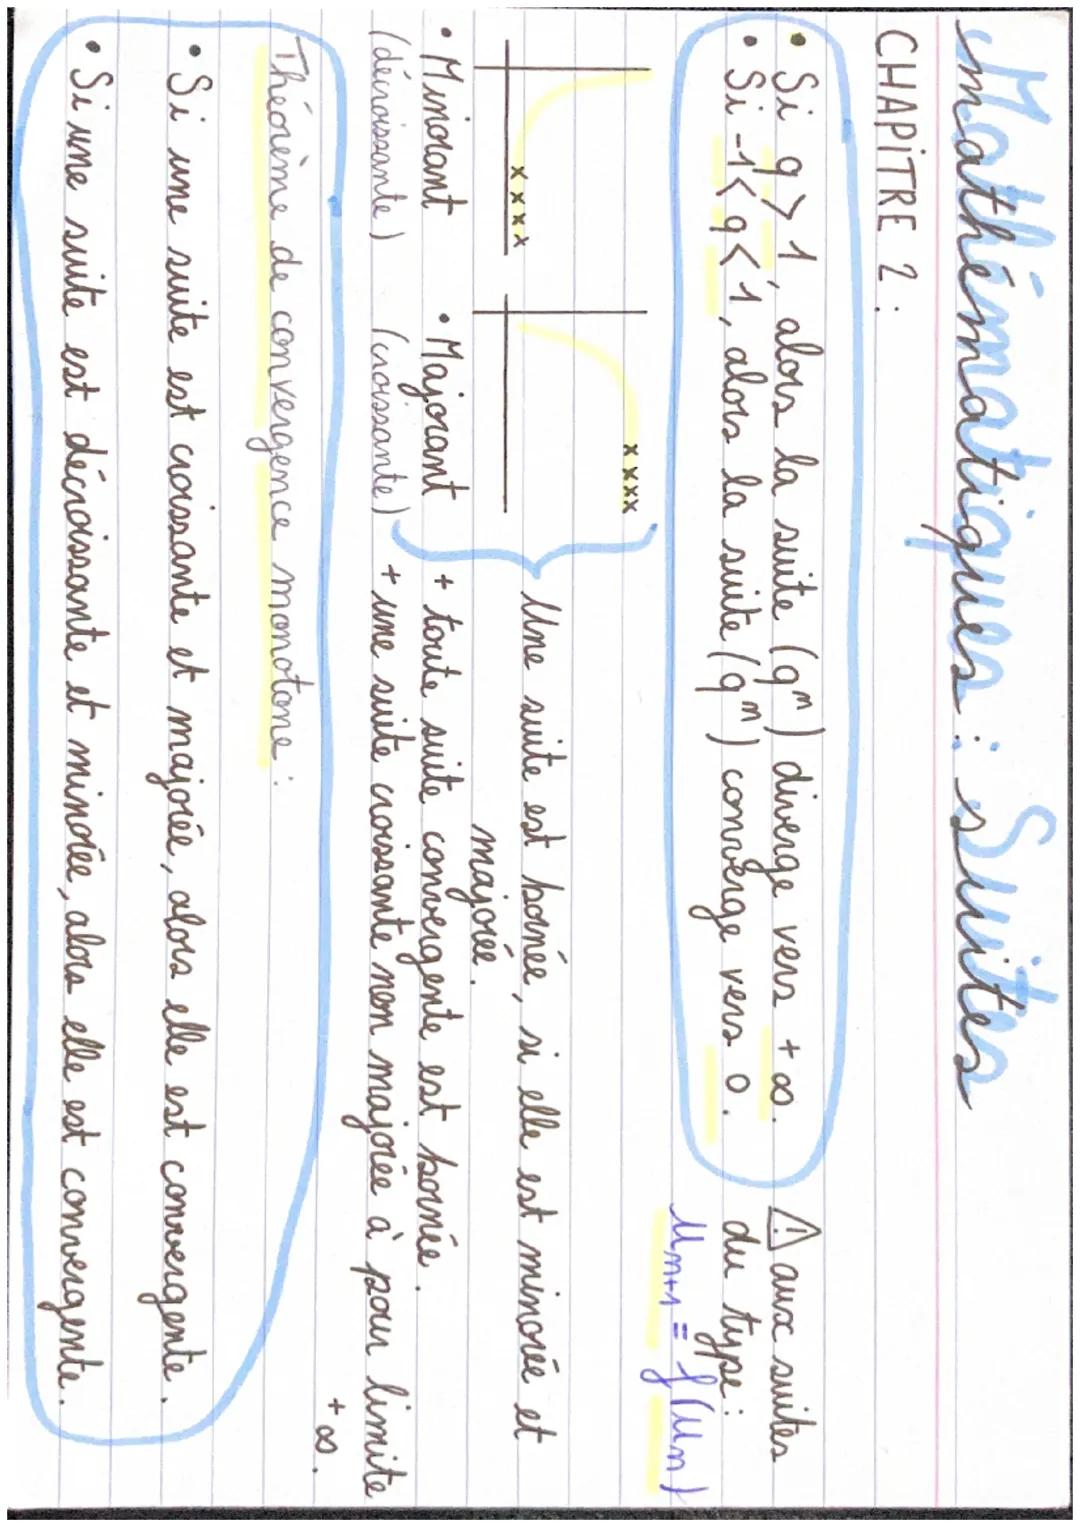 Mathématiques : Suites
CHAPITRE 2 :
• Si q > 1, alors la suite (qⁿ) diverge vers +∞.
• Si -1 < q < 1, alors la suite (qⁿ) converge vers 0.
⚠ aux suites
du type :
Un+1 = f(Un)
x x x x
x x x x
• Minorant
(décroissante)
• Majorant
(croissante)
Une suite est bornée, si elle est minorée et
majorée.
+ toute suite convergente est bornée.
+ une suite croissante non majorée à pour limite
+∞.
Théorème de convergence monotone :
• Si une suite est croissante et majorée, alors elle est convergente.
• Si une suite est décroissante et minorée, alors elle est convergente.